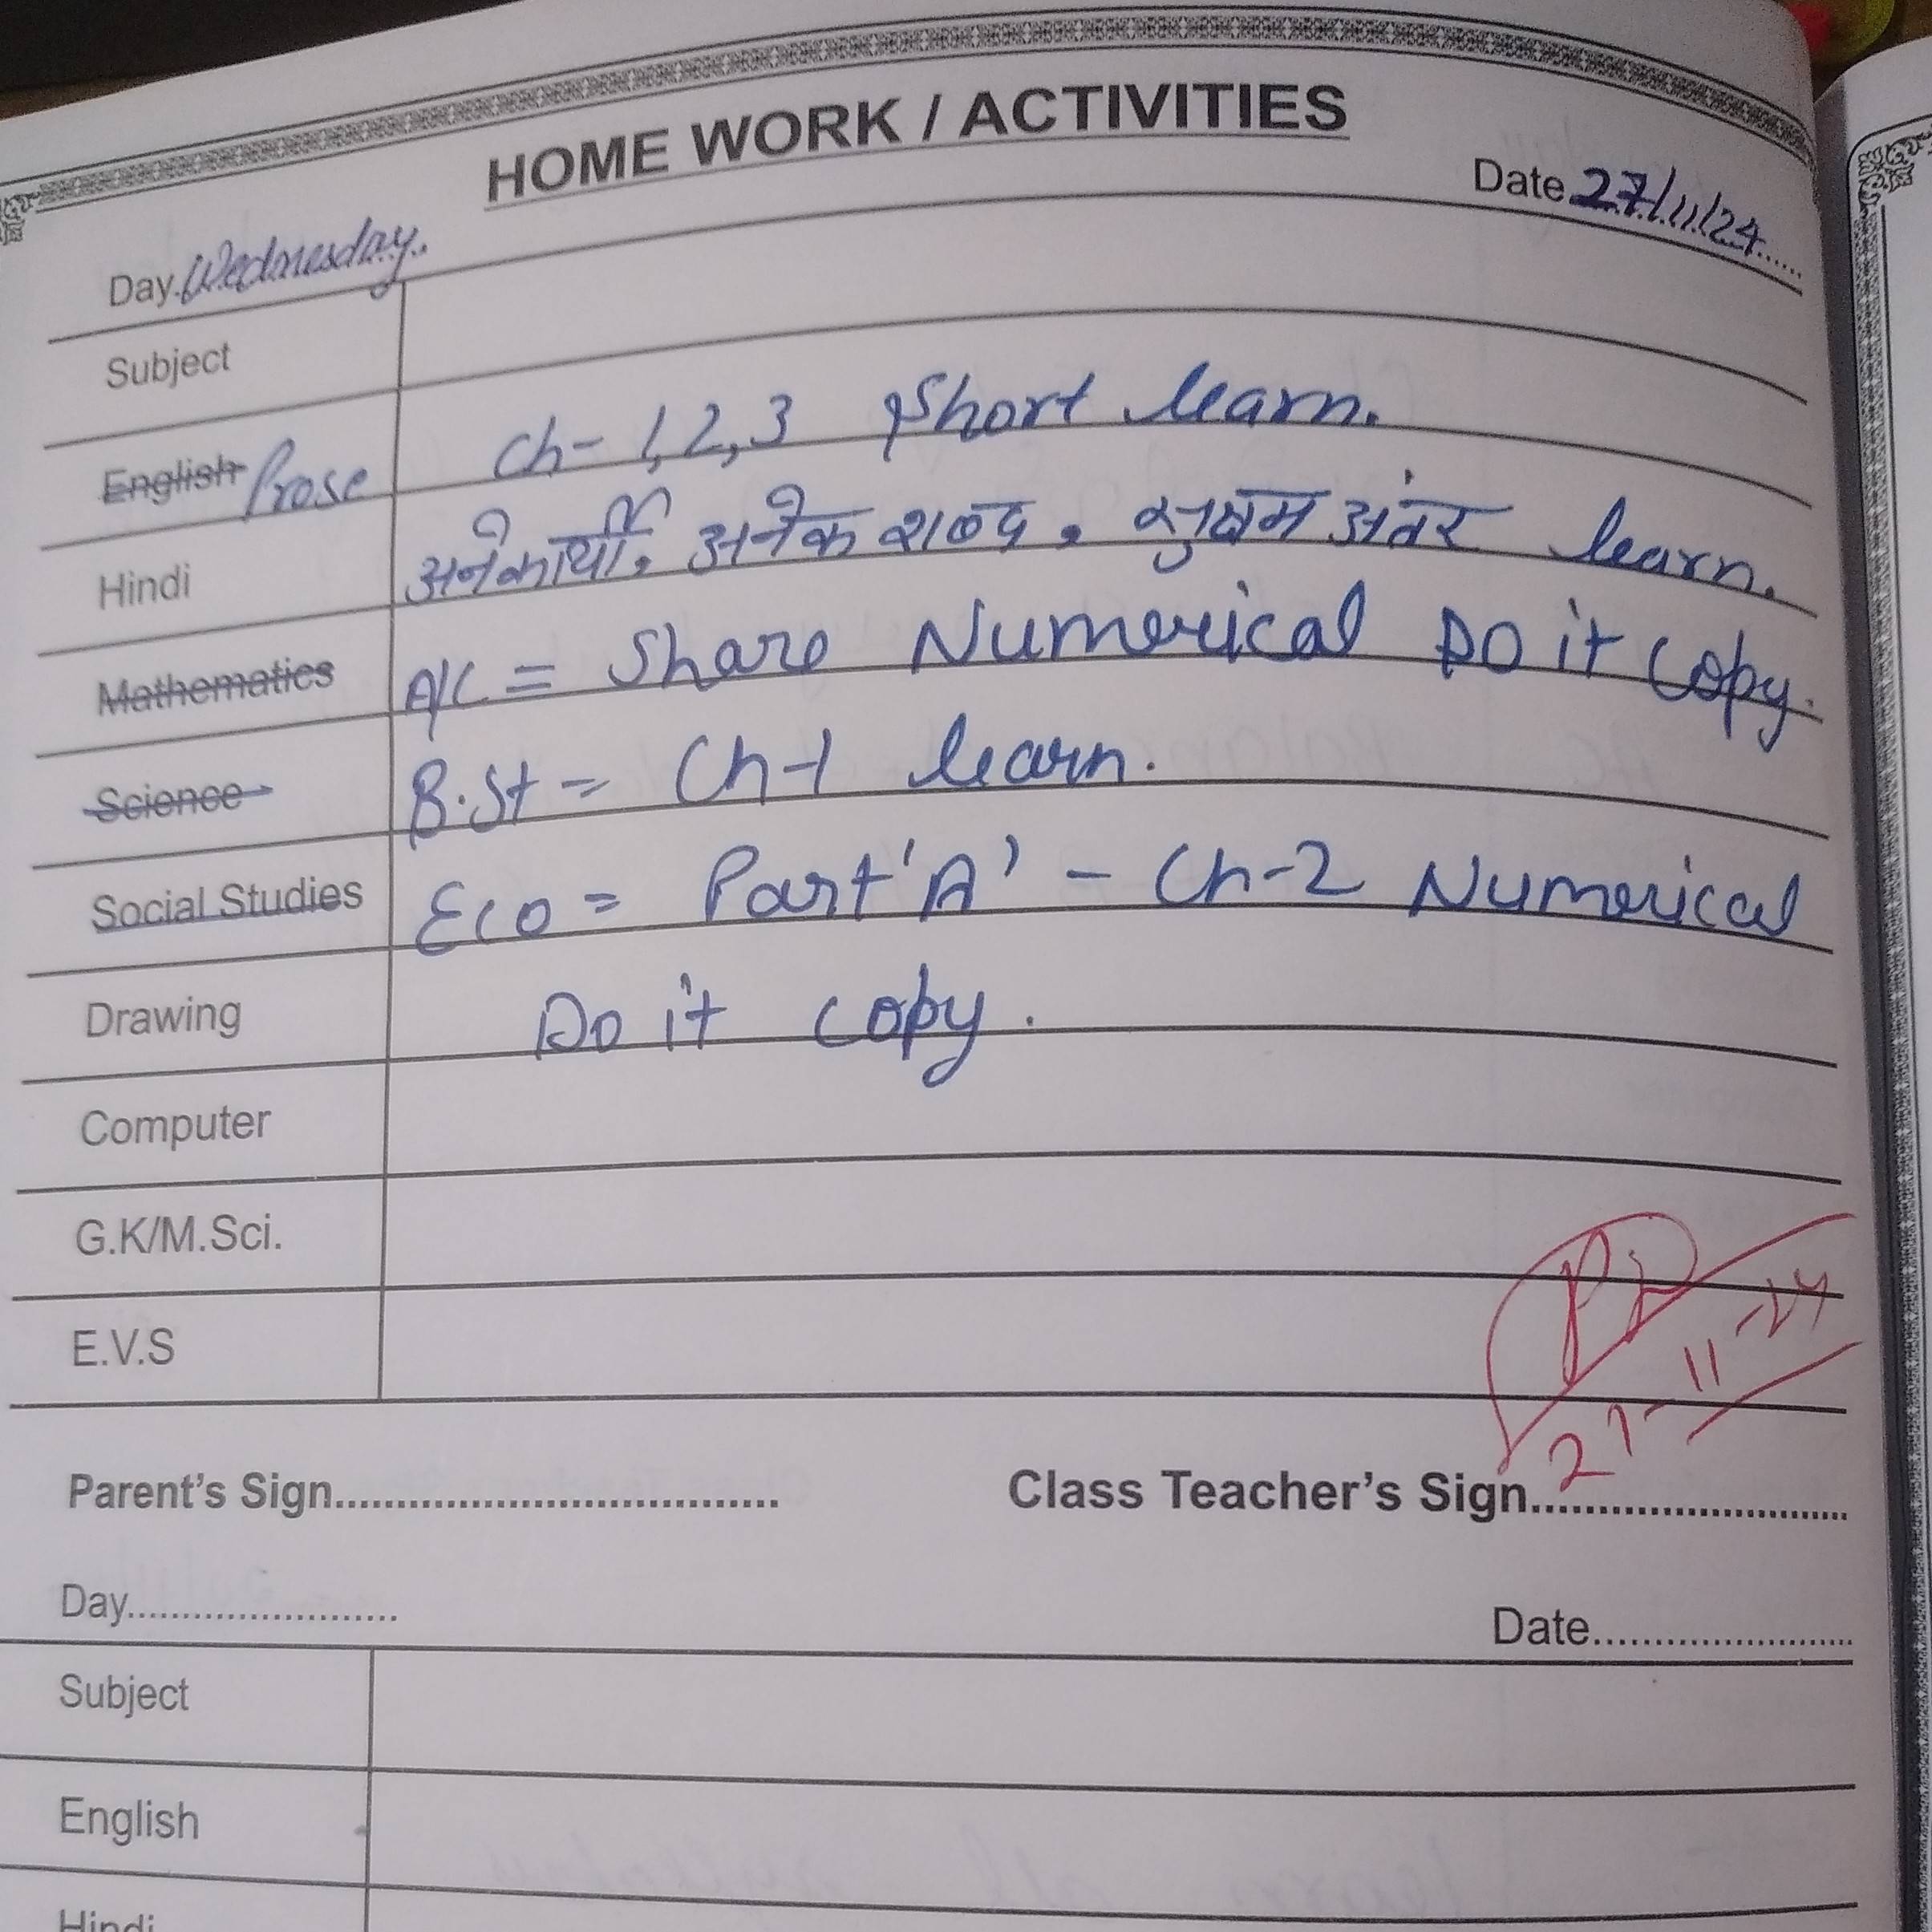 HOME WORK / ACTIVITIES
Date 27/11/24
Day Wednesday.
Subject
English Prose Ch-1,2,3 Short learn.
Hindi अनेकार्थी, अनेक शब्द, सुक्ष्म अंतर learn.
Mathematics A/C = Share Numerical Do it Copy.
Science B.St = Ch-1 learn.
Social Studies Eco = Part 'A' - Ch-2 Numerical
Drawing Do it copy.
Computer
G.K/M.Sci.
E.V.S
27-11-24
Parent's Sign.................................... Class Teacher's Sign.........................
Day....................... Date.......................
Subject
English
Hindi